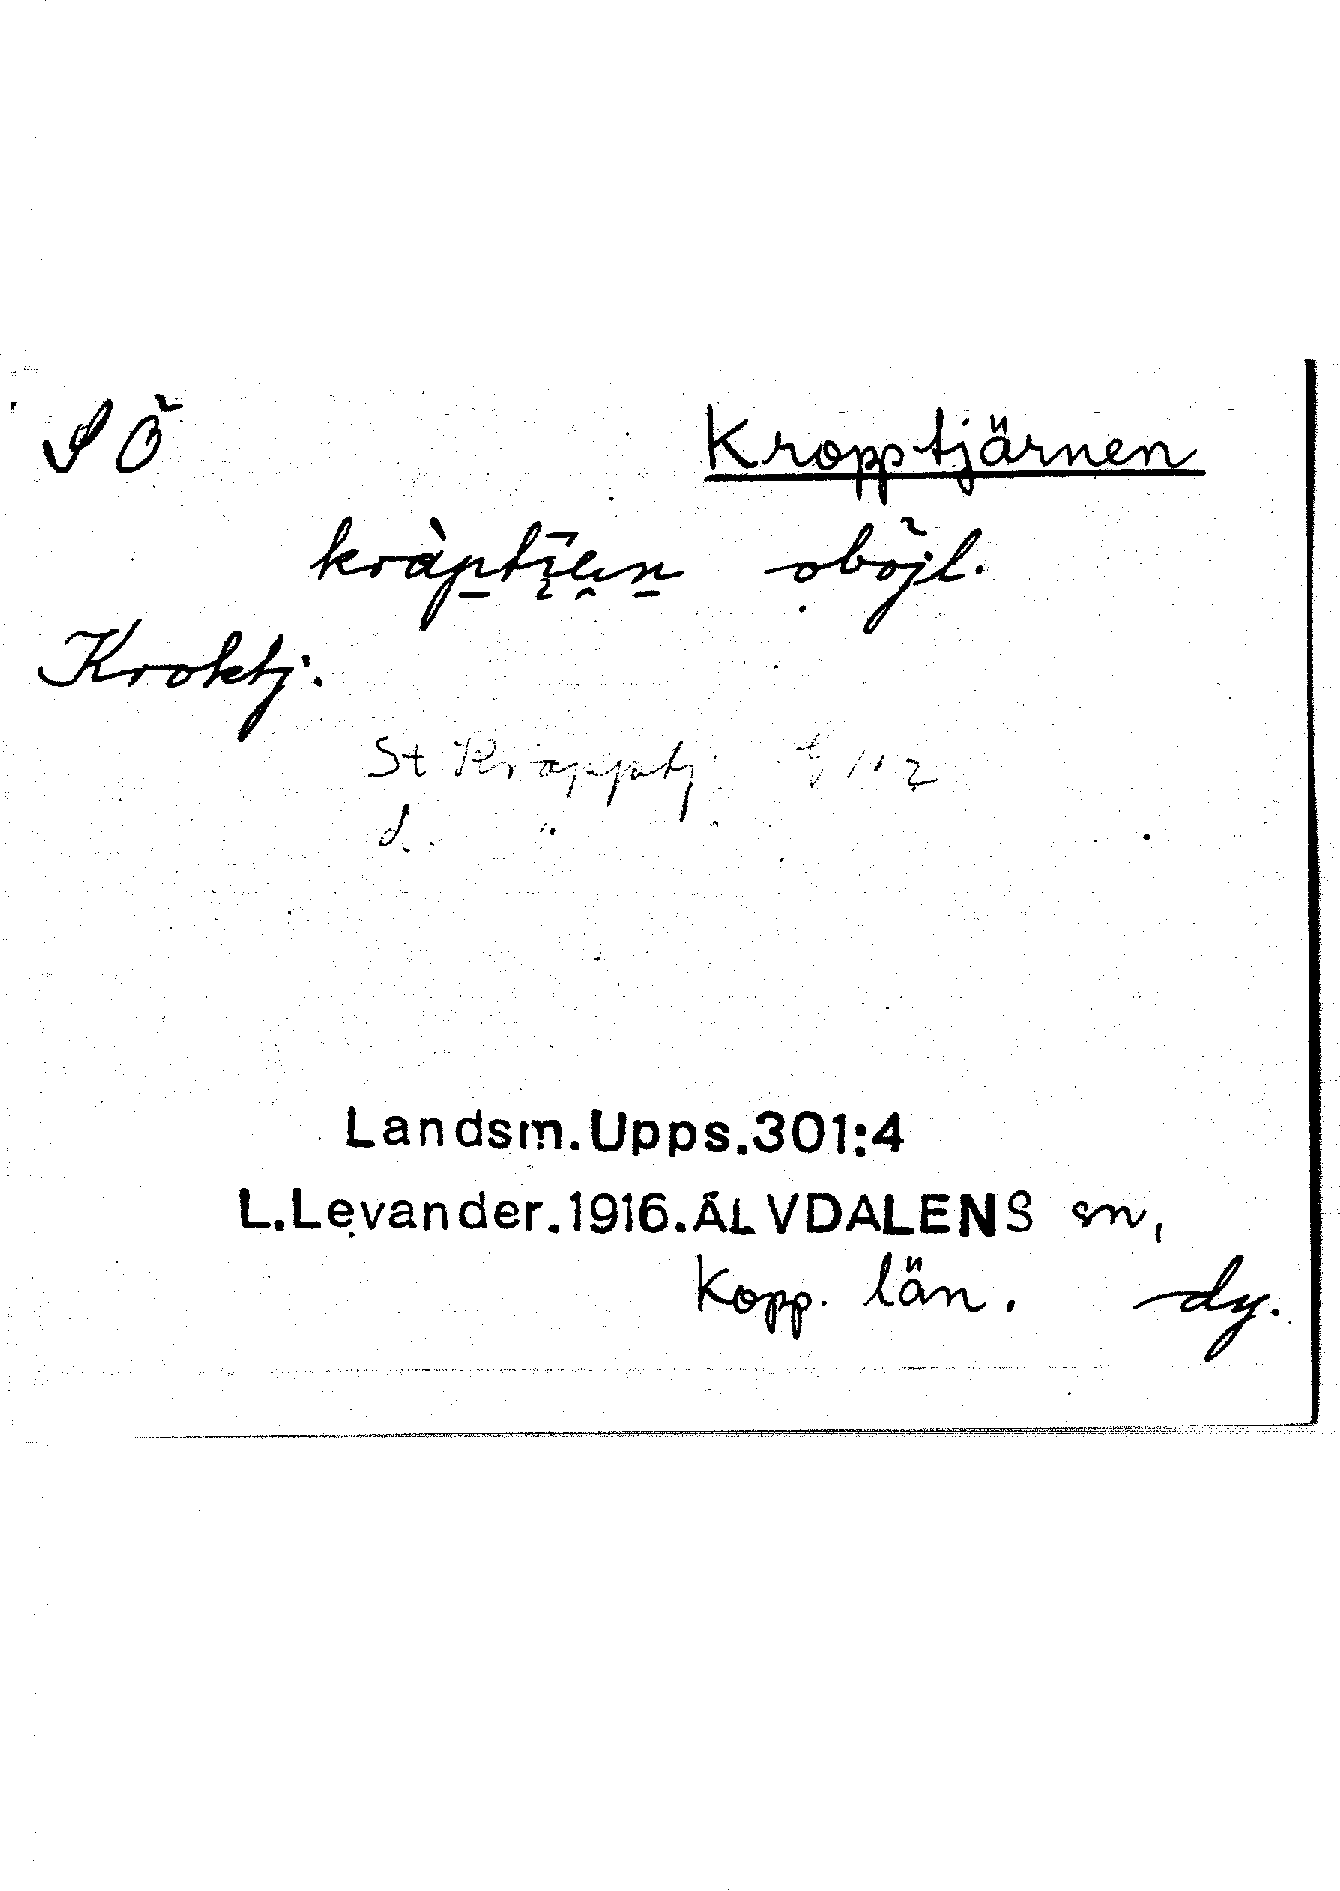 SÖ Kropptjärnen
oböjl.
Kroktj.
St Kropptj
L. "
Landsm.Upps.301:4
L.Levander.1916.ÄLVDALENS sn,
Kopp. län. dy.